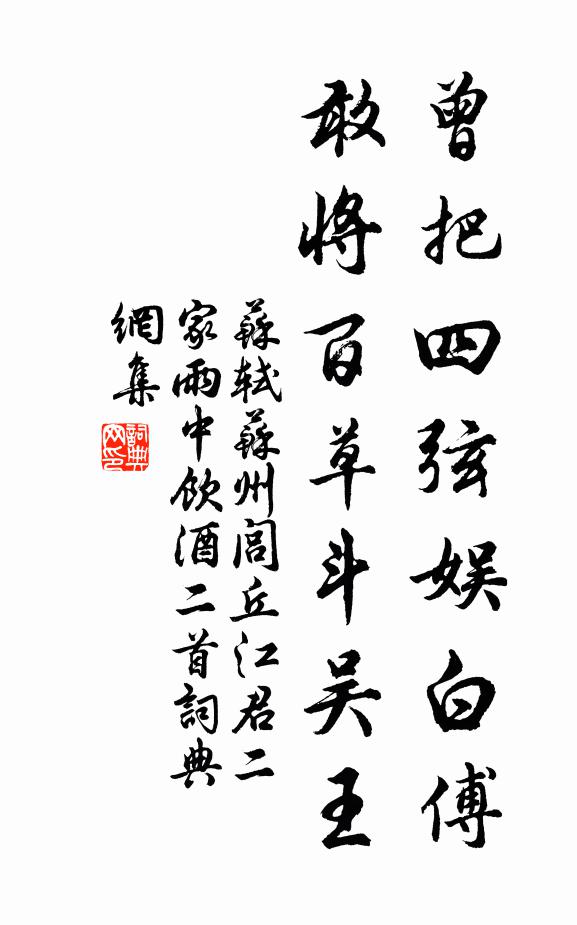 曾把四弦娱白傅
敢将百草斗吴王
蘇軾蘇州閭丘江君二
家雨中飲酒二首詞典
網集
詞典
网印